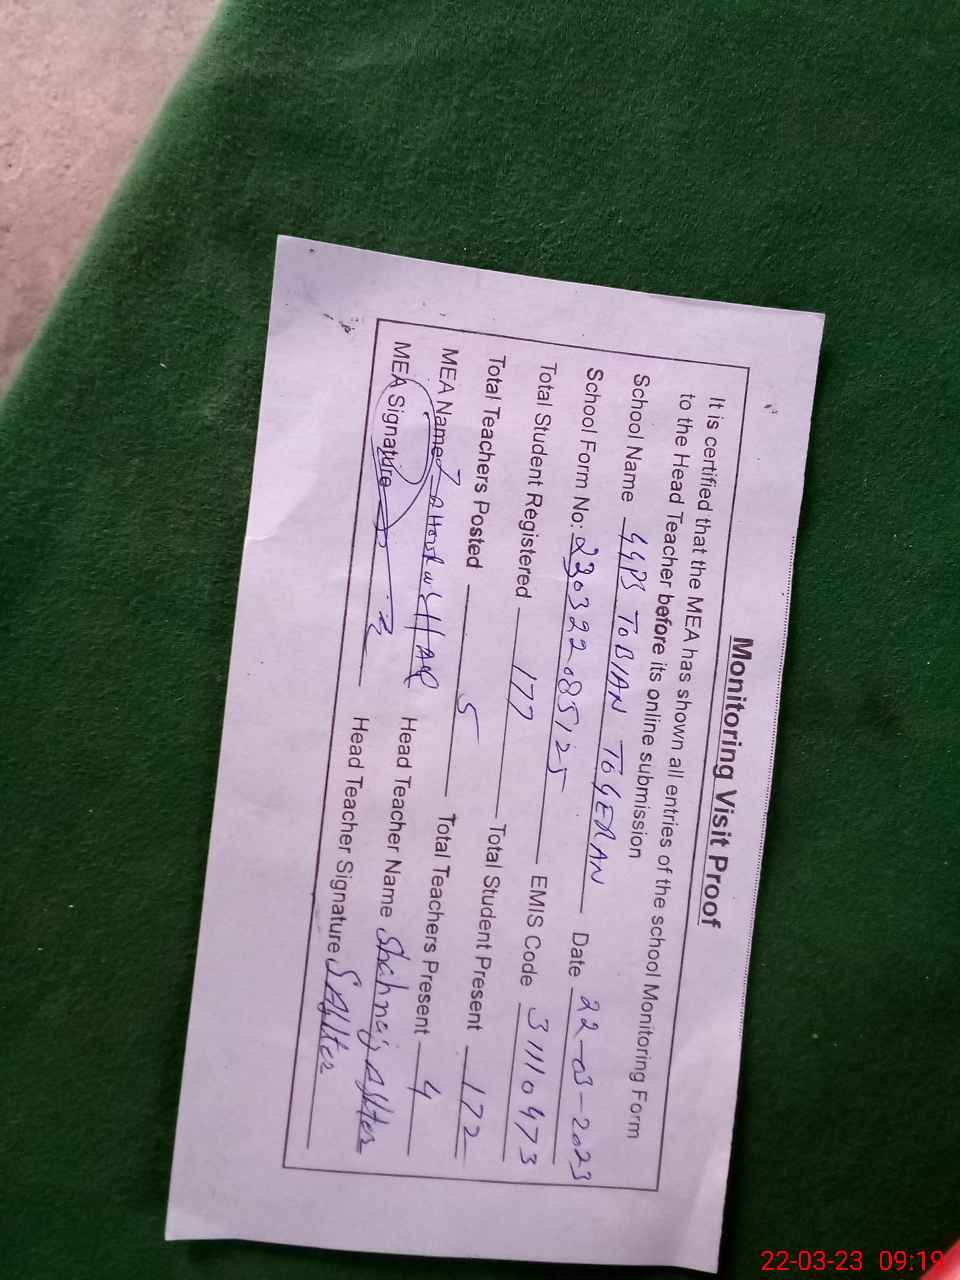 Monitoring Visit Proof
It is certified that the MEA has shown all entries of the school Monitoring Form
to the Head Teacher before its online submission
School Name GGPS TOBIAN TOGERAN Date 22-03-2023
School Form No: 230322085125 EMIS Code 31110473
Total Student Registered 177 Total Student Present 172
Total Teachers Posted 5 Total Teachers Present 4
MEA Name Head Teacher Name Shahnaz Akhter
MEA Signature Head Teacher Signature S Akhter
22-03-23 09:19